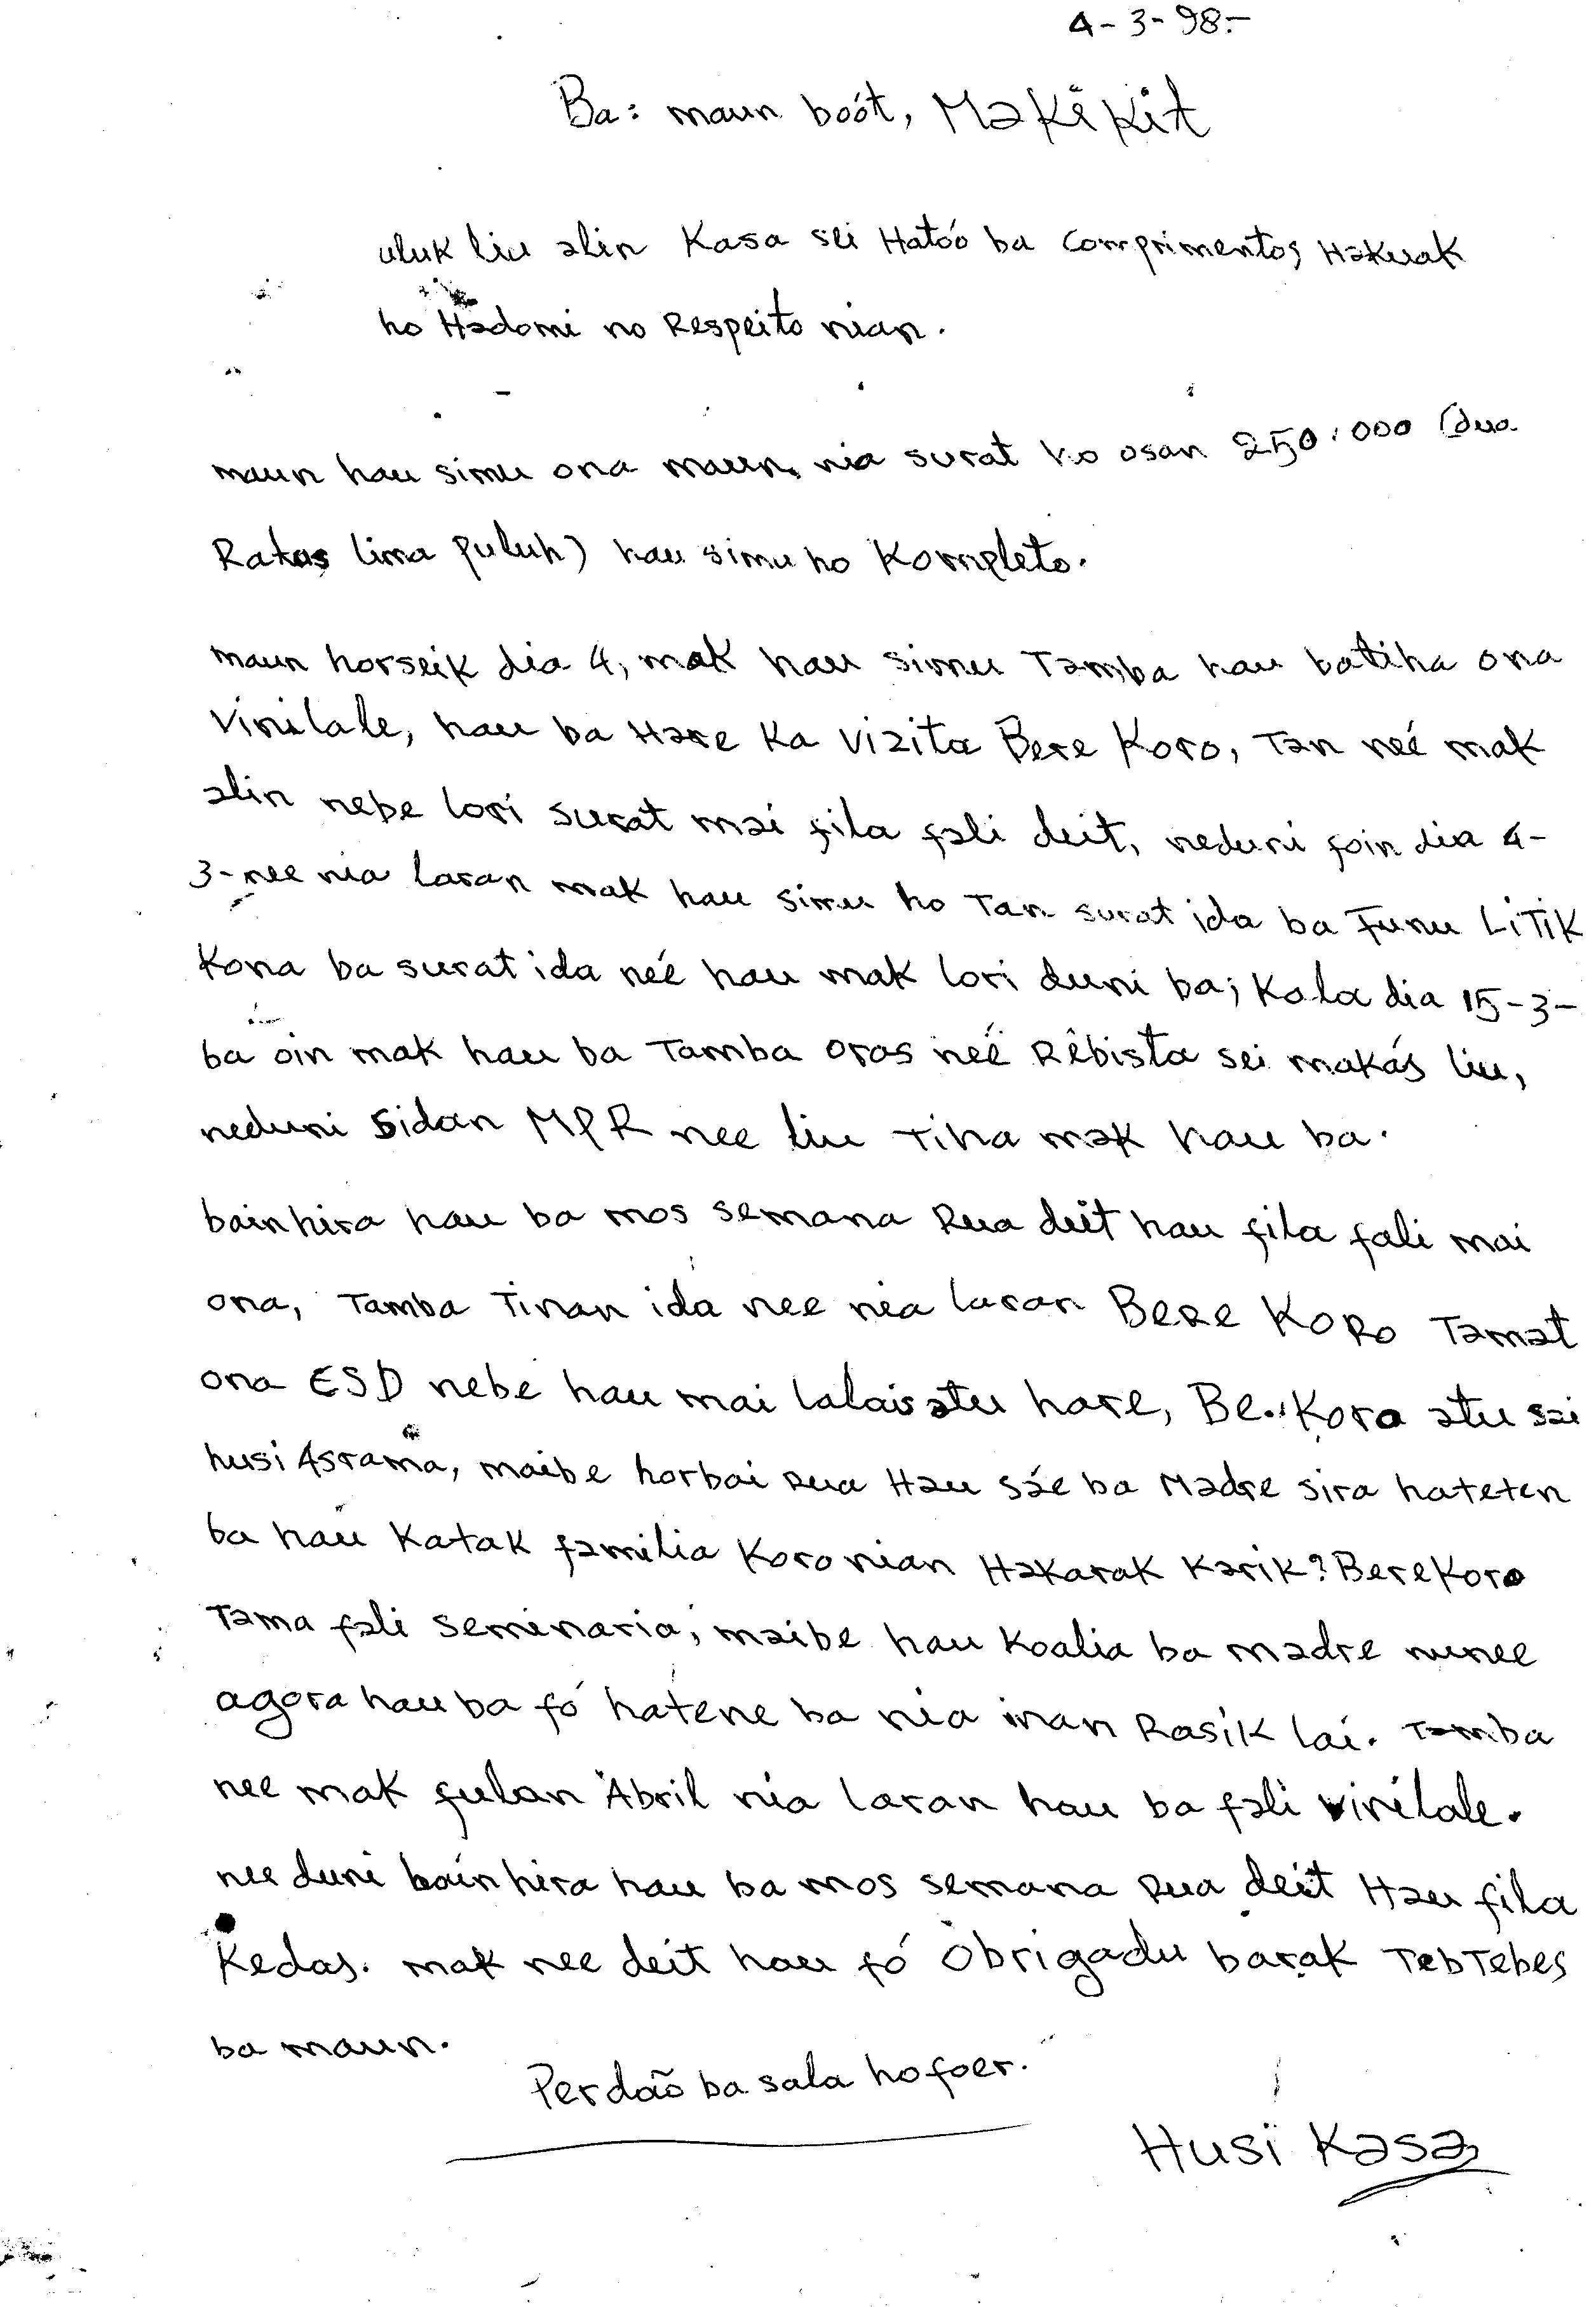 4-3-98.-
Ba: maun boót, Makêkit
uluk liu alin Kasa sei Hatóo ba Comprimentos Hakuak
ho Hadomi no Respeito nian.
maun hau simu ona maun nia surat ho osan 250.000 (dua
Ratus lima puluh) hau simu ho Kompleto.
maun horseik dia 4, mak hau simu Tamba hau batiha ona
Vinilale, hau ba Hare Ka Vizita Bere Koro, Tan neé mak
alin nebe lori surat mai fila fali deit, neduni foin dia 4-
3-nee nia laran mak hau simu ho Tan surat ida ba Funu LiTiK
Kona ba surat ida neé hau mak lori duni ba; Kala dia 15-3-
ba oin mak hau ba Tamba oras neé Rêbista sei makás liu,
neduni Sidan MPR nee liu Tiha mak hau ba.
bainhira hau ba mos semana Rua deit hau fila fali mai
ona, Tamba Tinan ida nee nia laran Bere Koro Tamat
ona ESD nebe hau mai lalais atu hare, Be. Koro atu sai
husi Asrama, maibe horbai rua Hau sáe ba Madre sira hateten
ba hau Katak familia Koro nian Hakarak Karik? BereKoro
Tama fali seminaria, maibe hau Koalia ba madre nunee
agora hau ba fó hatene ba nia inan Rasik lai. Tamba
nee mak fulan Abril nia laran hau ba fali vinilale.
nee duni bainhira hau ba mos semana Rua deit Hau fila
Kedas. mak nee deit hau fó Obrigadu barak TebTebes
ba maun.
Perdão ba sala ho foer.
Husi Kasa